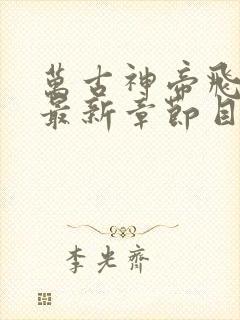 萬古神帝飛
最新章節目
李光齊